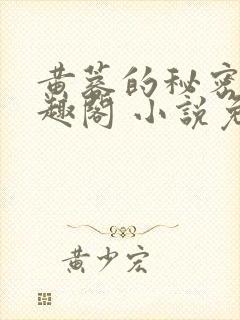 黄蓉的秘密
趣阁 小説免
黄少宏